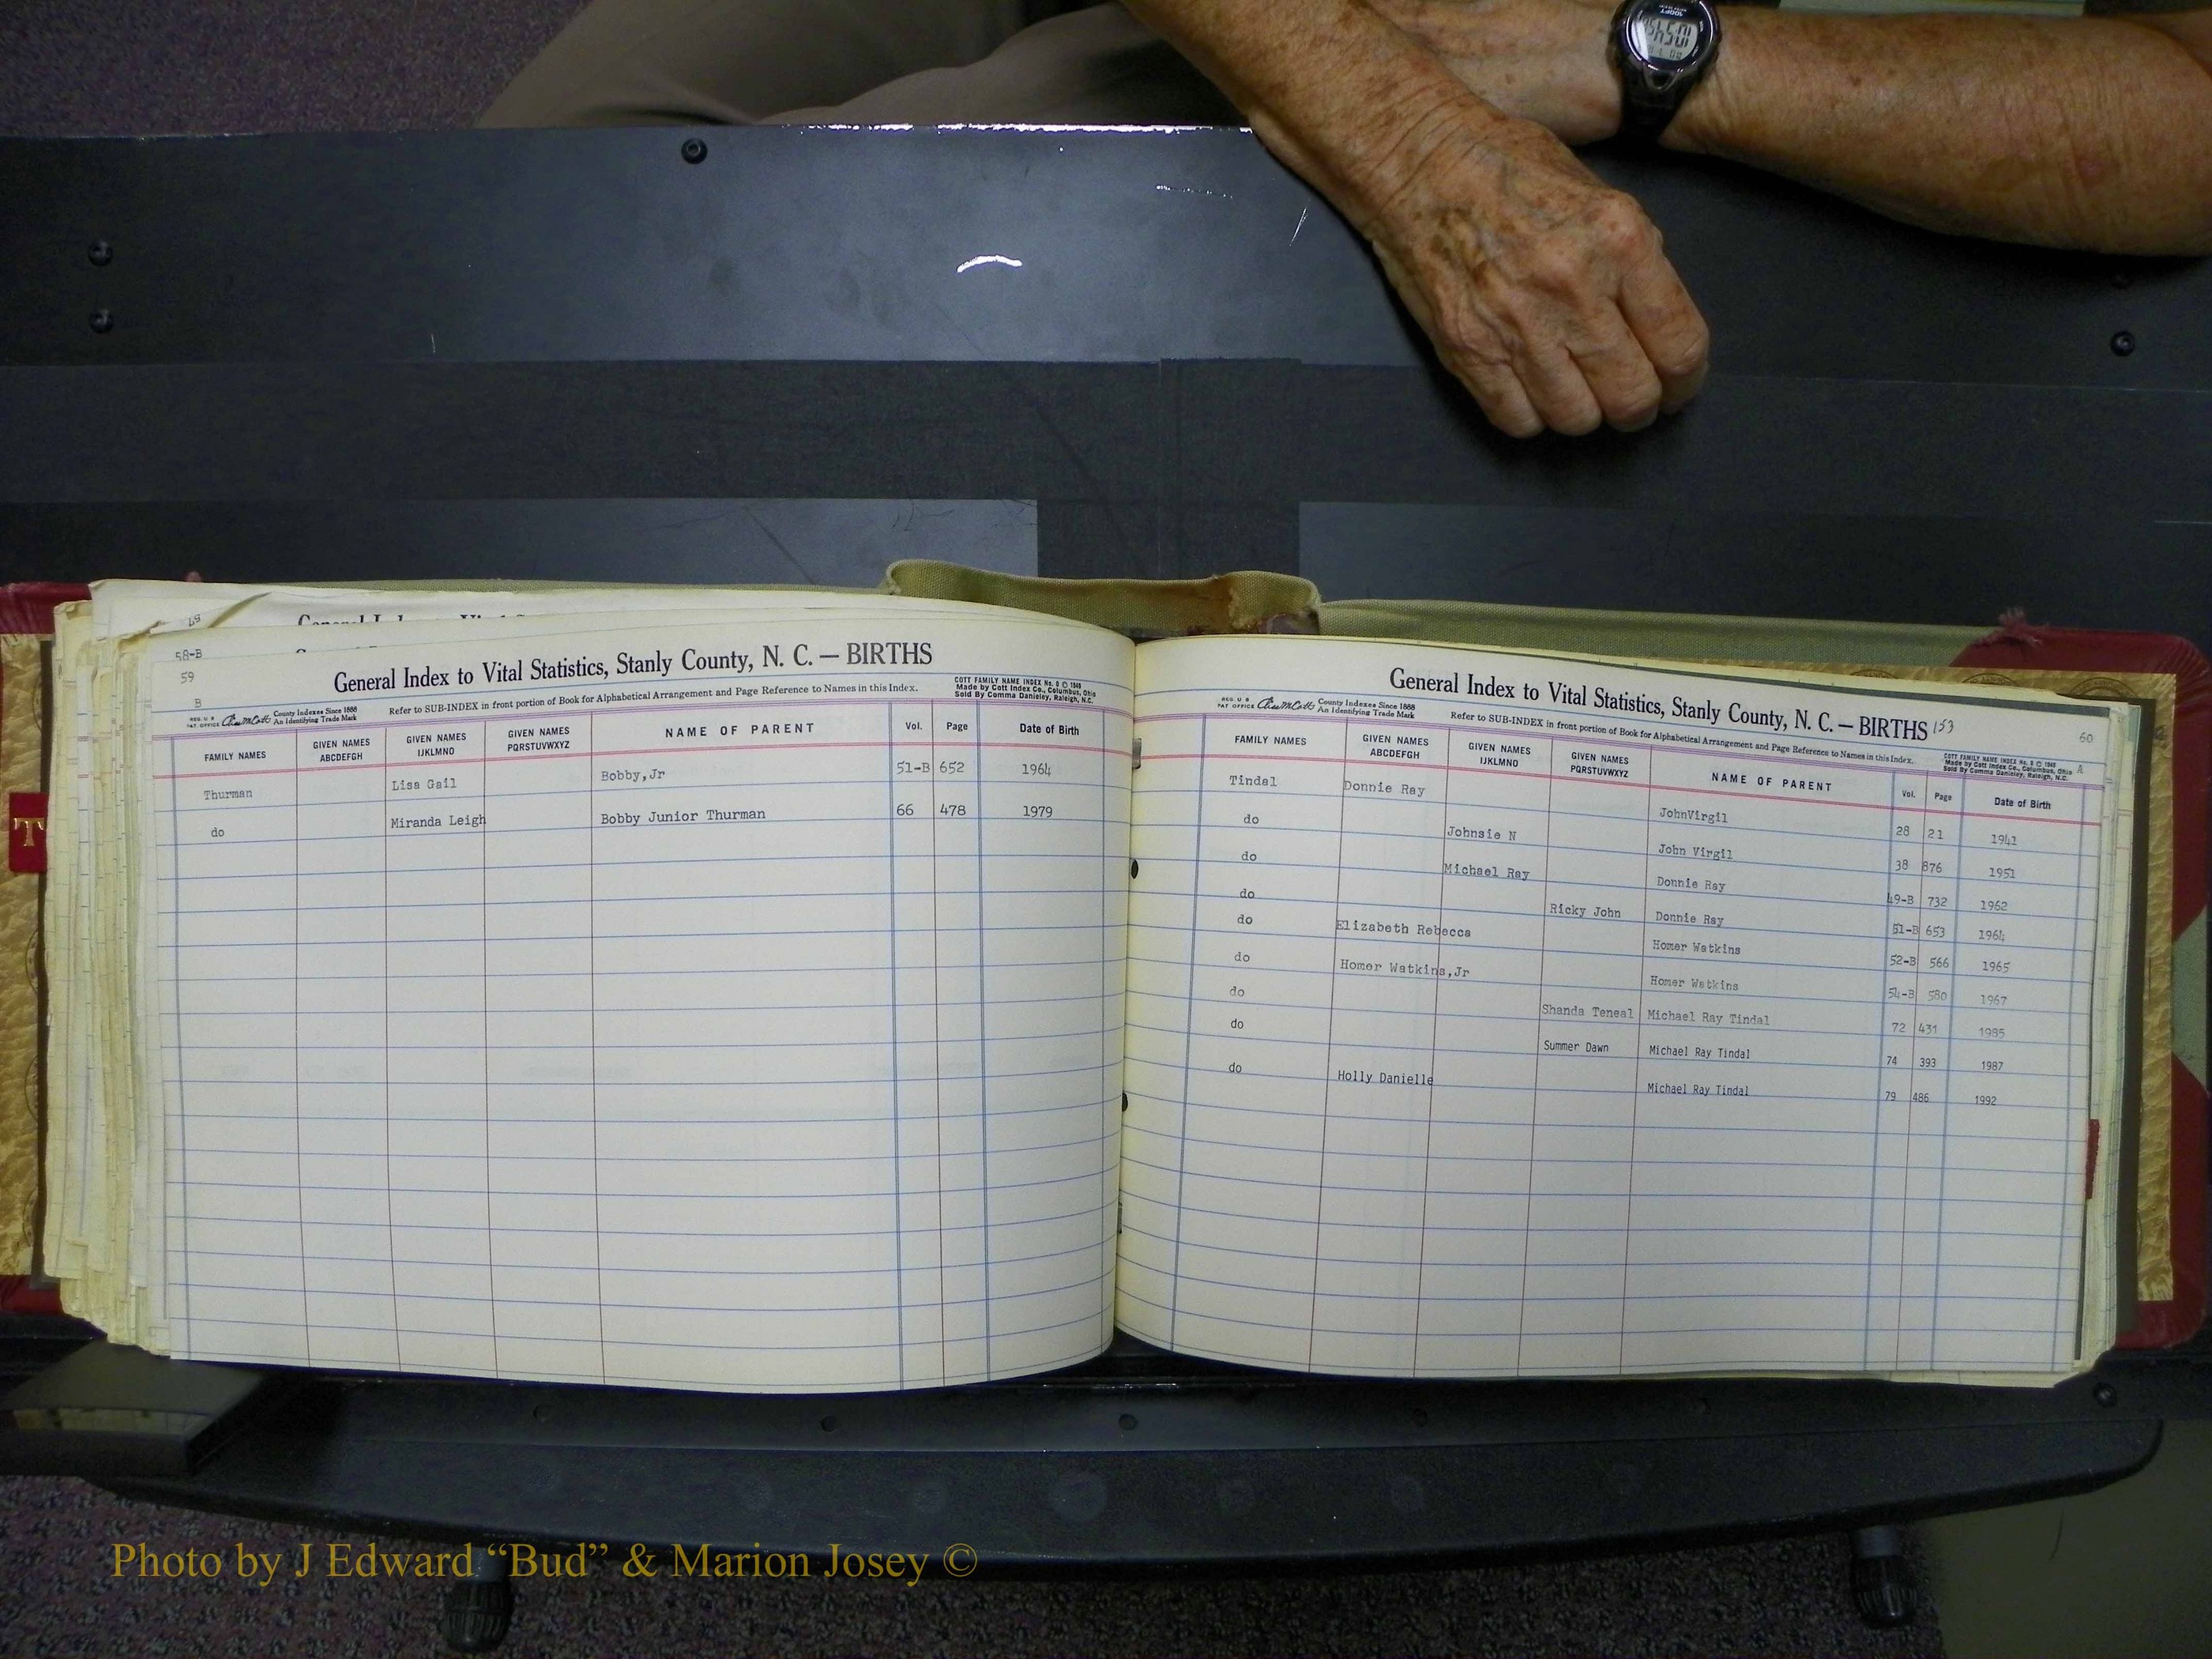 58-B
59
B
General Index to Vital Statistics, Stanly County, N. C. — BIRTHS
COTT FAMILY NAME INDEX No. 8 © 1948
Made by Cott Index Co., Columbus, Ohio
Sold By Comma Danieley, Raleigh, N.C.
REG. U S PAT. OFFICE County Indexes Since 1888 An Identifying Trade Mark
Refer to SUB-INDEX in front portion of Book for Alphabetical Arrangement and Page Reference to Names in this Index.
FAMILY NAMES GIVEN NAMES ABCDEFGH GIVEN NAMES IJKLMNO GIVEN NAMES PQRSTUVWXYZ NAME OF PARENT Vol. Page Date of Birth
Thurman Lisa Gail Bobby,Jr 51-B 652 1964
do Miranda Leigh Bobby Junior Thurman 66 478 1979
T
General Index to Vital Statistics, Stanly County, N. C. — BIRTHS 153
60
A
COTT FAMILY NAME INDEX No. 8 © 1948
Made by Cott Index Co., Columbus, Ohio
Sold By Comma Danieley, Raleigh, N.C.
REG. U S PAT OFFICE County Indexes Since 1888 An Identifying Trade Mark
Refer to SUB-INDEX in front portion of Book for Alphabetical Arrangement and Page Reference to Names in this Index.
FAMILY NAMES GIVEN NAMES ABCDEFGH GIVEN NAMES IJKLMNO GIVEN NAMES PQRSTUVWXYZ NAME OF PARENT Vol. Page Date of Birth
Tindal Donnie Ray JohnVirgil 28 21 1941
do Johnsie N John Virgil 38 876 1951
do Michael Ray Donnie Ray 49-B 732 1962
do Ricky John Donnie Ray 51-B 653 1964
do Elizabeth Rebecca Homer Watkins 52-B 566 1965
do Homer Watkins,Jr Homer Watkins 54-B 580 1967
do Shanda Teneal Michael Ray Tindal 72 431 1985
do Summer Dawn Michael Ray Tindal 74 393 1987
do Holly Danielle Michael Ray Tindal 79 486 1992
Photo by J Edward “Bud” & Marion Josey ©